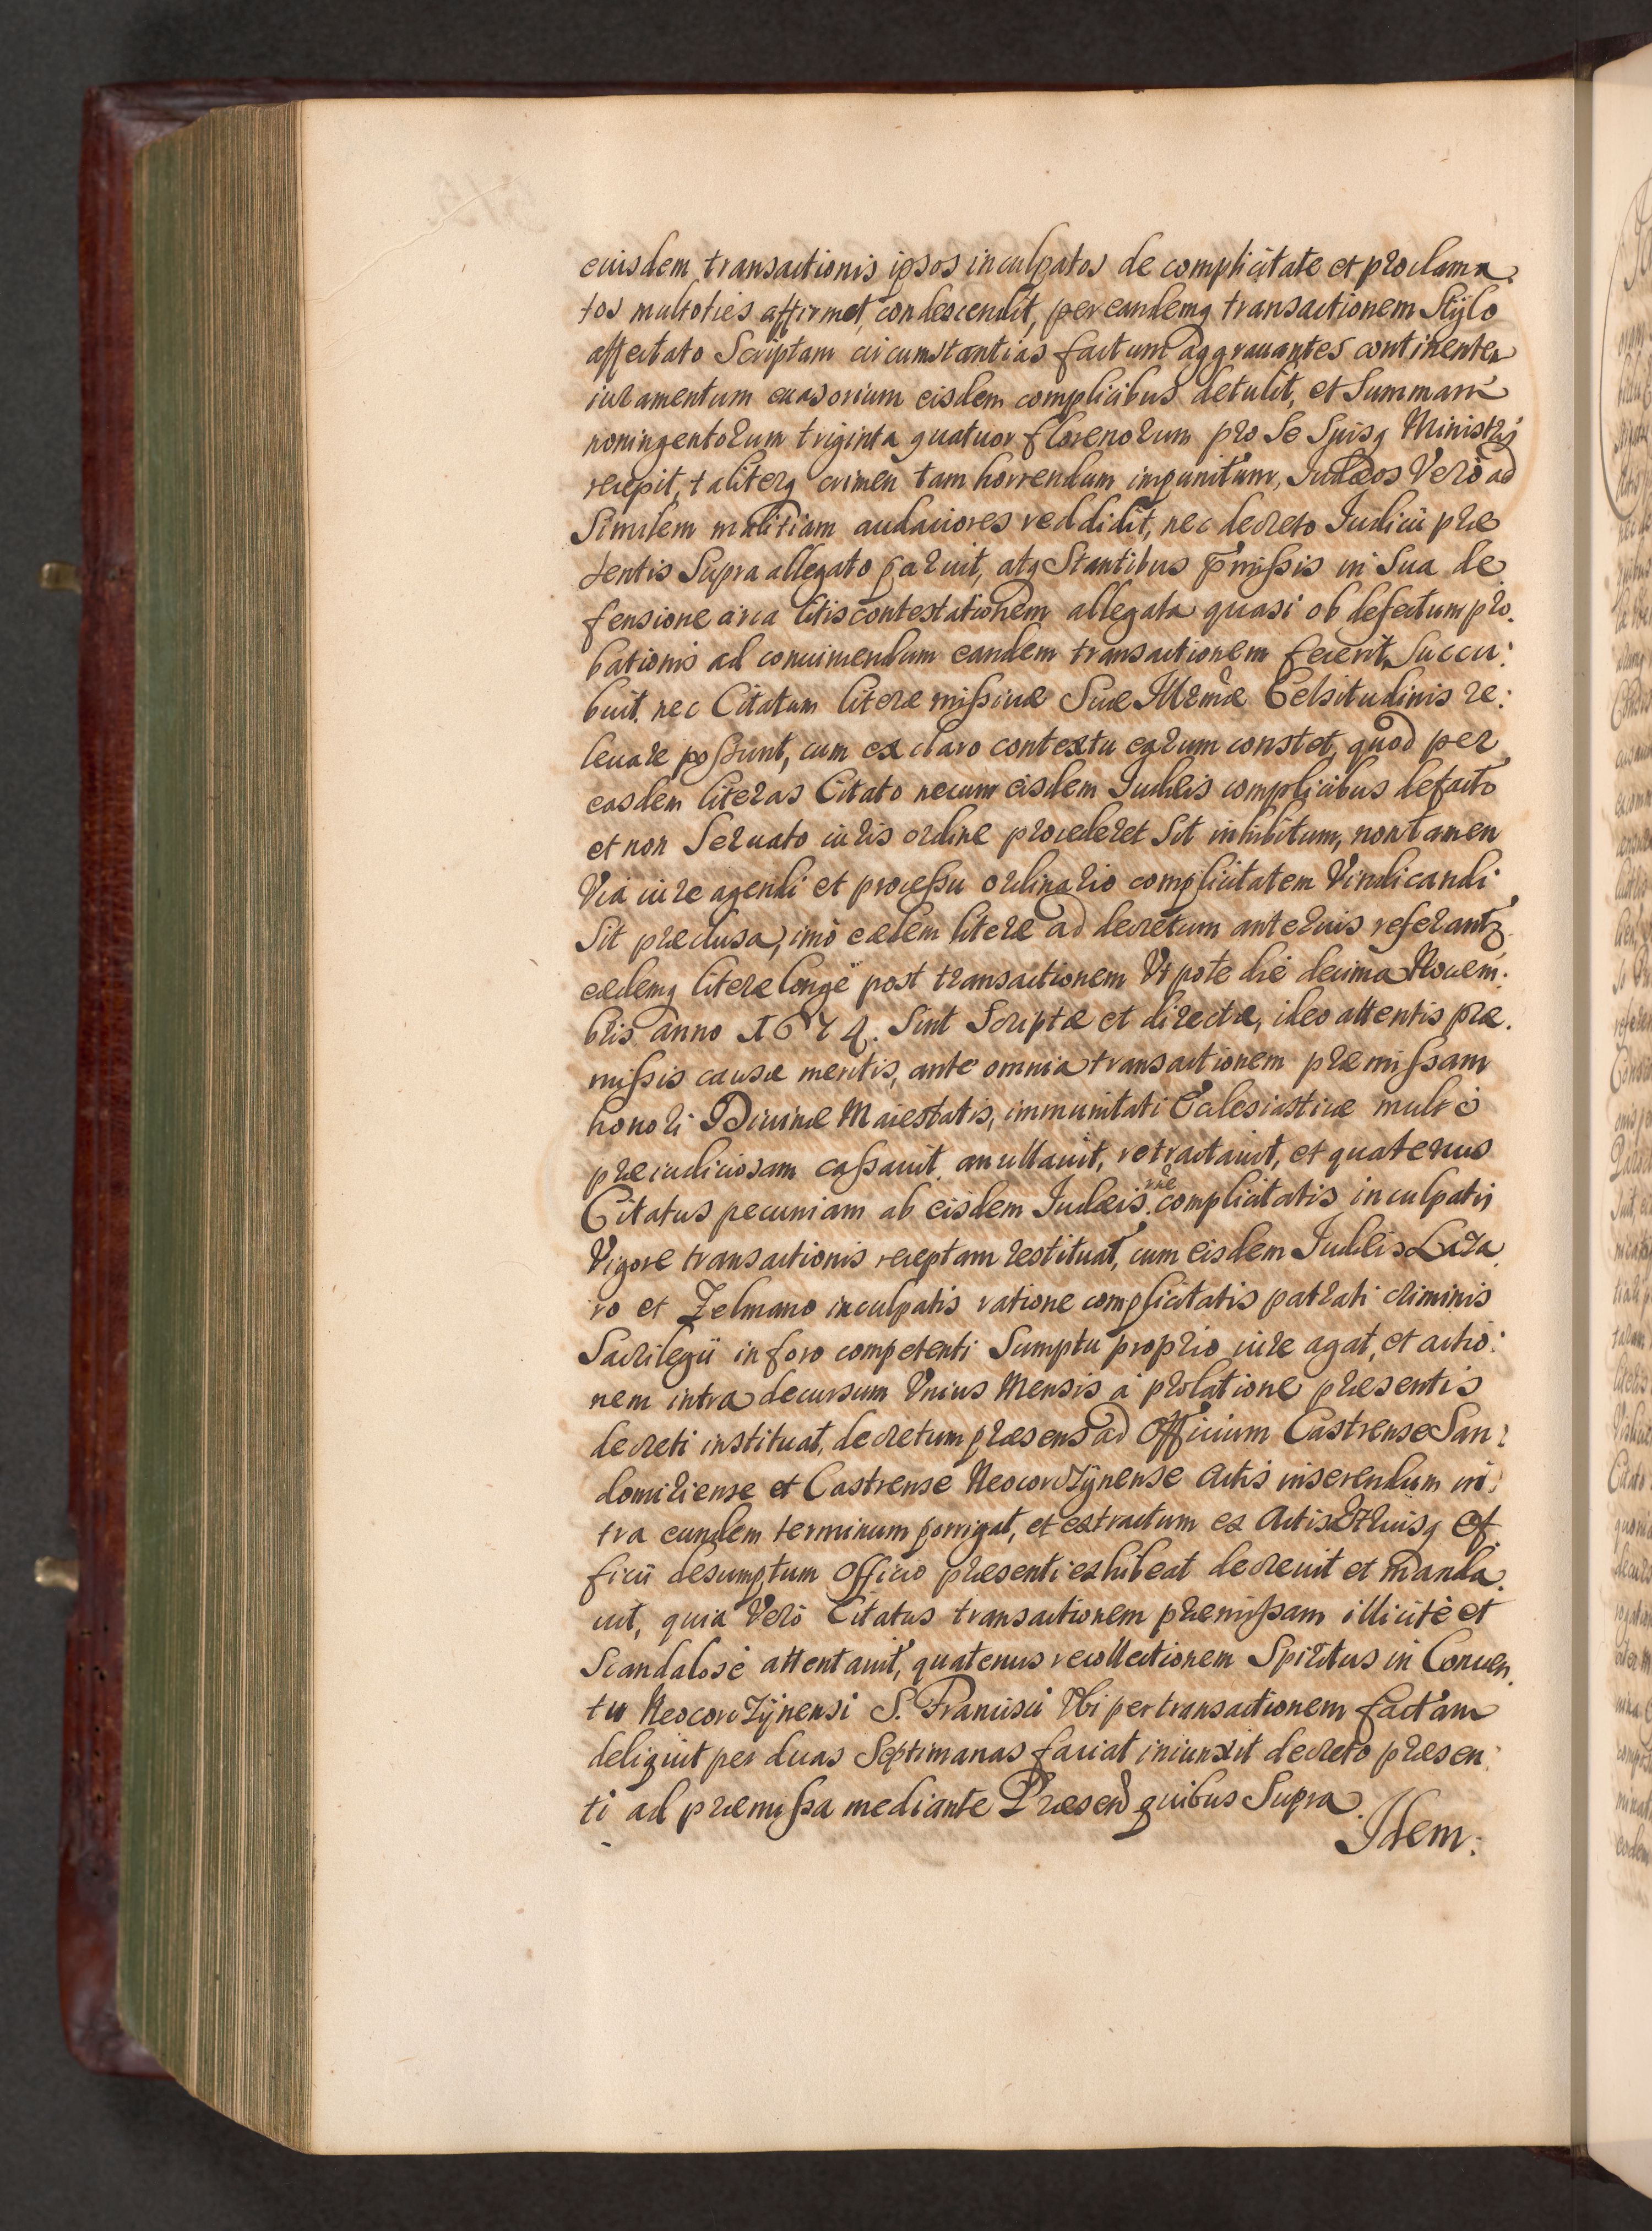 euisdem transactionis ipsos inculpatos de complicitate et proclama
tos multoties affirmet, condescendit, per eandemq transactionem Stylo
affectato Scriptam circumstantias factum aggrauantes continentem
iuramentum euasorium eisdem complicibus detulit, et Summam
noningentorum triginta quatuor florenorum pro Se Suisq Ministris
recepit, taliterq crimen tam horrendum impunitum, Iudæos Verò ad
Similem malitiam audaciores reddidit, nec decreto Iudicii præ
sentis Supra allegato paruit, atq Stantibus pmißis in Sua de
fensione circa litis contestationem allegata quasi ob defectum pro.
bationis ad conuincendum eandem transactionem fecerit, Succu:
buit. nec Citatum literæ mißiuæ Suæ Illrmæ Celsitudinis re:
leuare poßunt, cum ex claro contextu earum constet, quod per
easdem literas Citato necum eisdem Iudæis complicibus defacto
et non Seruato iuris ordine procederet Sit inhibitum, non tamen
Via iure agendi et proceßu ordinario complicitatem Vindicandi
Sit præclusa, imò eædem literæ ad decretum anterius referantr
eædemq literæ longè post transactionem Vtpote die decima Nouem.
bris anno 1674. Sint Scriptæ et directæ, ideo attentis præ.
mißis causæ meritis, ante omnia transactionem præmißam
honori Diuinæ Maiestatis, immunitati Ecclesiasticæ multò
præiudiciosam caßauit. anullauit, retractauit, et quatenus
Citatus pecuniam ab eisdem Iudæis. rne complicitatis inculpatis
Vigore transactionis receptam restituat, cum eisdem Iudæis Laza
ro et Zelmano inculpatis ratione complicitatis patrati criminis
Sacrilegii in foro competenti Sumptu proprio iure agat, et actio:
nem intra decursum Vnius Mensis à prolatione præsentis
decreti instituat, decretum præsens ad Officium Castrense San:
domiriense et Castrense Neocorczynense Actis inserendum in:
tra eundem terminum porrigat, et extractum ex Actis Vtriusq Of.
ficii desumptum Officio præsenti exhibeat decreuit et manda.
uit, quia Verò Citatus transactionem præmißam illicitè et
Scandalosè attentauit, quatenus recollectionem Spiritus in Conuen.
tu Neocorczynensi S. Francisci Vbi per transactionem factam
deliquit per duas Septimanas faciat iniunxit decreto præsen:
ti ad præmißa mediante Præsend quibus Supra.
Idem: